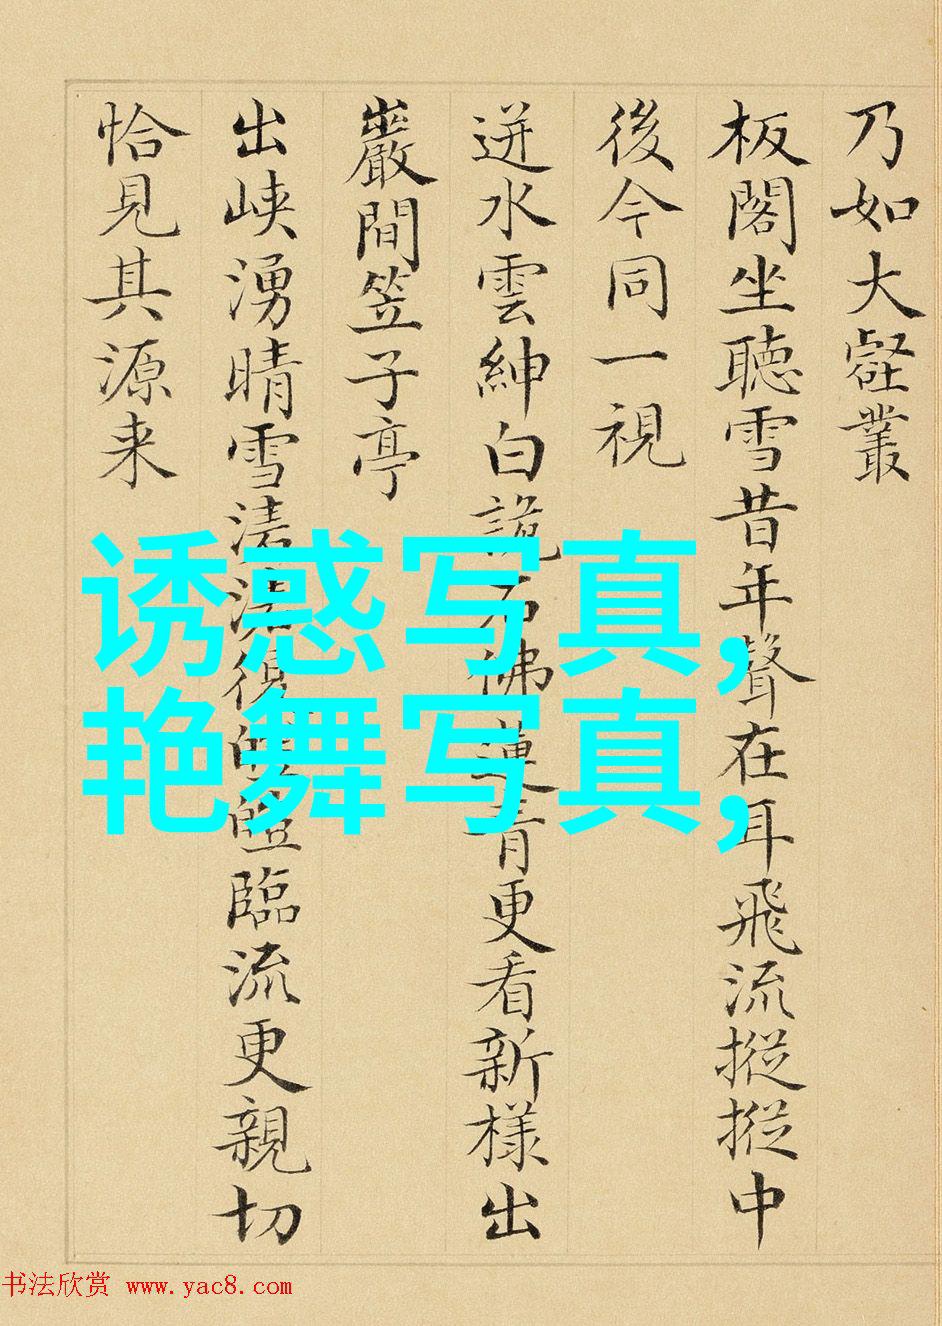 乃如大壑叢
板閣坐聽雪昔年聲在耳飛流摐摐中
後今同一視
迸水雲紳白石佛青更看新樣出
巖間笠子亭
出峽湧晴雪臨流更親切
恰見其源来
诱惑写真,
艳舞写真,
书法欣赏 www.yac8.com